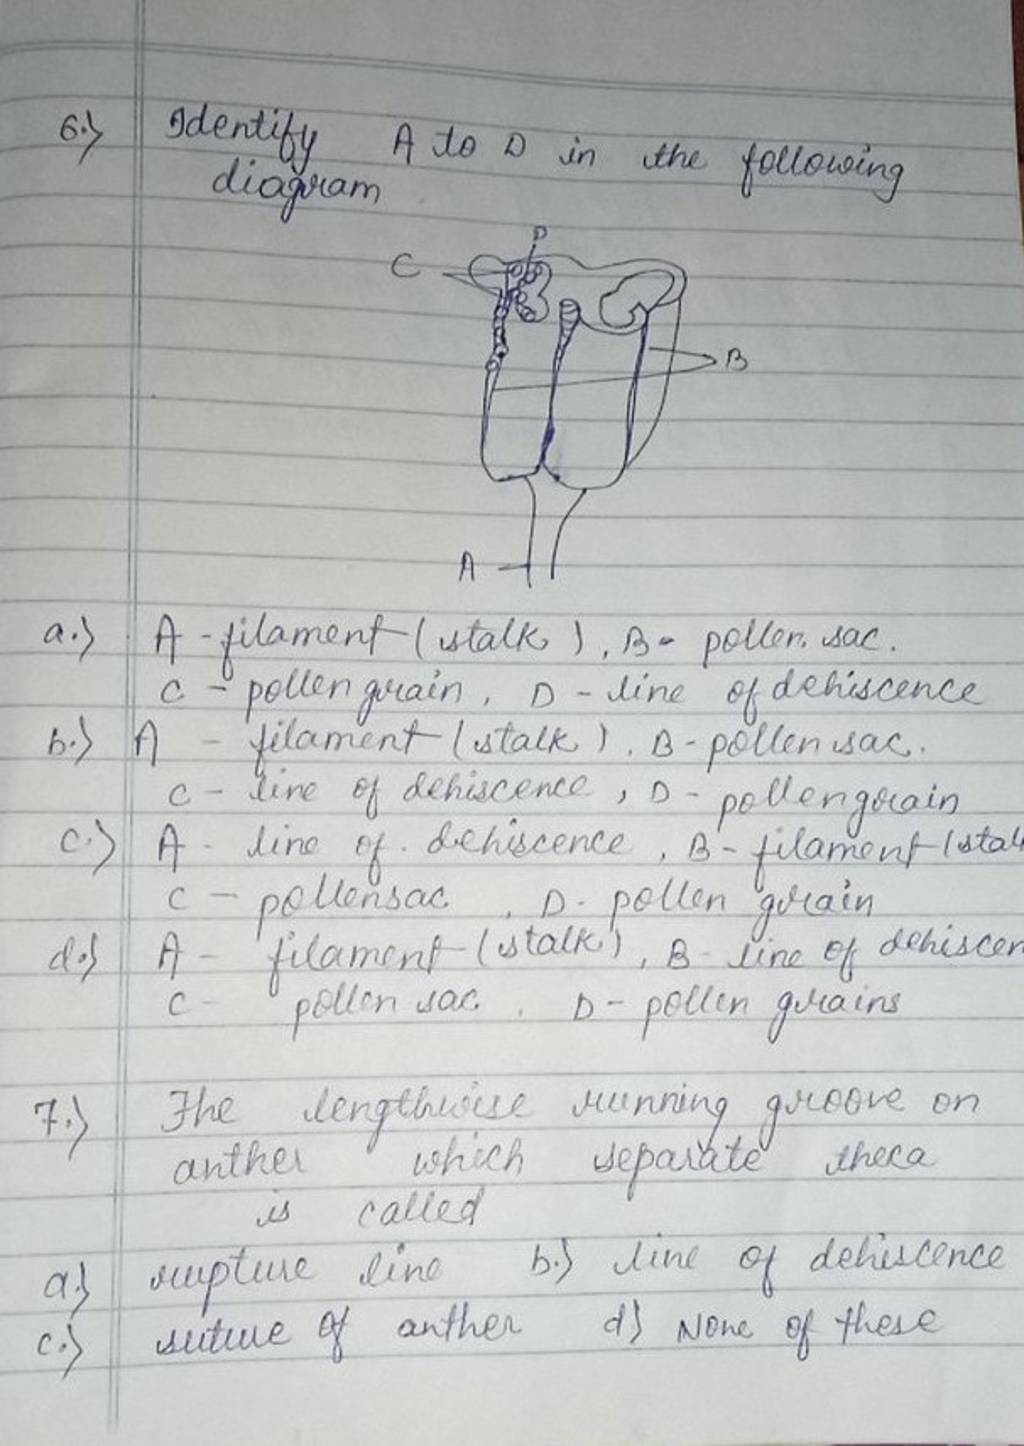 6.) Identify A to D in the following
diagram
D
C
B
A
a.) A - filament (stalk), B - pollen sac.
C - pollen grain, D - line of dehiscence
b.) A - filament (stalk), B - pollen sac.
C - line of dehiscence, D - pollen grain
c.) A - line of dehiscence, B - filament (stal
C - pollen sac, D - pollen grain
d.) A - filament (stalk), B - line of dehiscen
C - pollen sac, D - pollen grains
7.) The lengthwise running groove on
anther which separate theca
is called
a.) rupture line b.) line of dehiscence
c.) suture of anther d) None of these